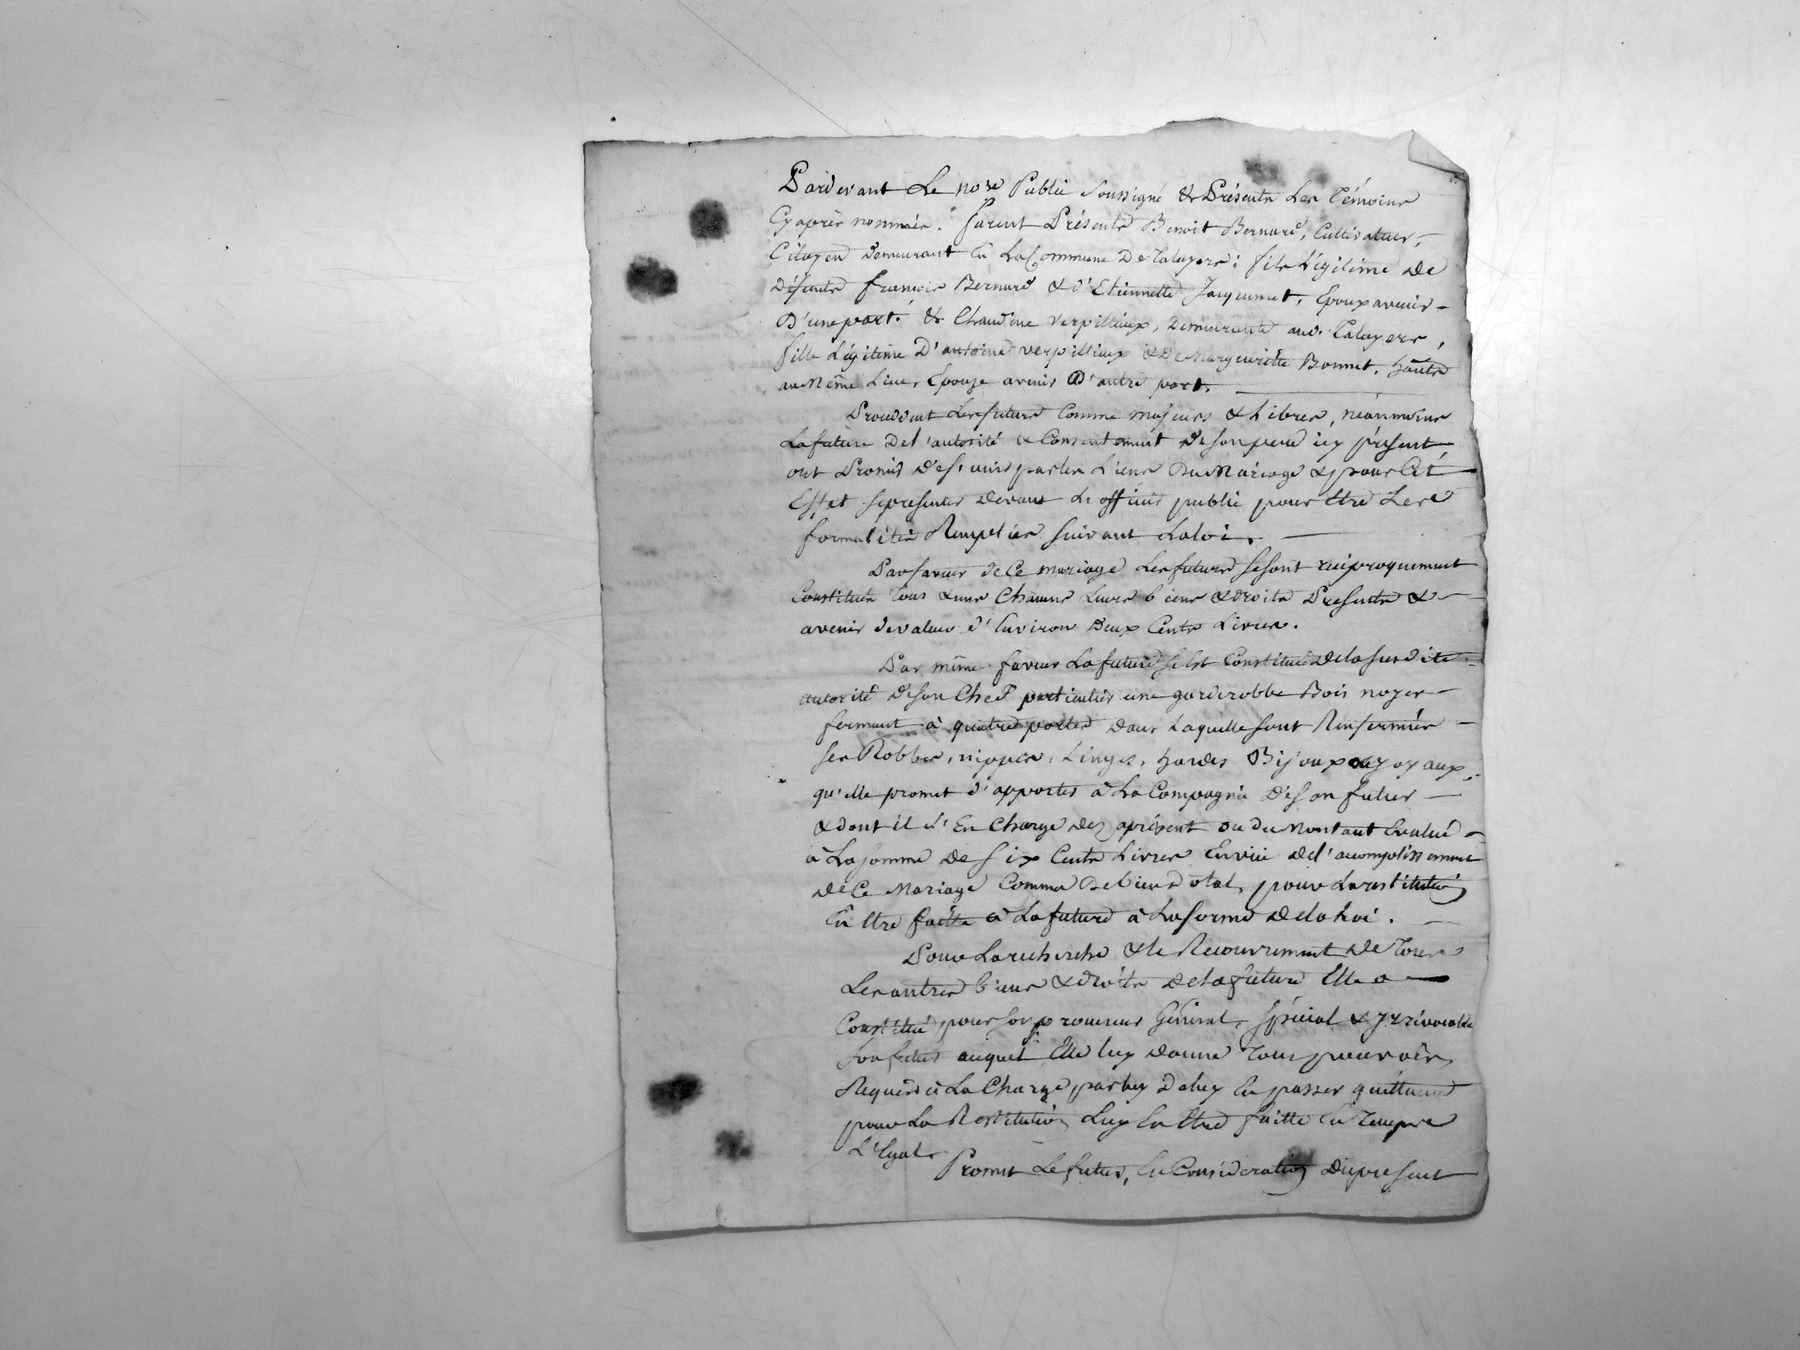 Pardevant Le no.re Public soussigné & Présents Les Témoins
Cyaprès nommés. furent Présents Benoit Bernard, Cultivateur,
Citoyen demeurant en La Commune De Taluyers; fils Légitime de
Défunts francois Bernard & d'Etiennette Jacquemet, Epoux avenir
D'une part. & Claudine verpillieux, Demeurante aud. Taluyers,
fille Légitime D'antoine verpillieux & De Marguerite Bonnet,
au Même Lieu, Epouze avenir D'autre part.
Procedent Les futurs Comme majeurs & Libres, néanmoins
La future De l'autorité & Consentement De son pere icy présent,
ont Promis De s'unir par les Liens Du Mariage & pour Cet
Effet se presenter devant L'officier public pour Etre Les
formalités Remplies suivant La loi.
Par faveur de Ce mariage Les futurs se sont reciproquement
Constitués Tous & uns Chacuns Leurs biens & droits Presents &
avenir de valeur d'Environ deux Cents Livres.
Par même faveur La future s'Est Constituée De la susdite
autorité De son Chef particulier une garderobbe Bois noyer
fermant à quatre portes dans Laquelle sont Renfermés
ses Robbes, nippes, Linges, hardes Bijoux & joyaux,
qu'elle promet d'apporter à La Compagnie De son futur
& dont il s'En Charge dez aprésent ou du Montant Evalué
à La somme De six Cents Livres En vüe de l'acomplissement
de Ce Mariage Comme De bien dotal, pour La restitution
En Etre faitte à La future à La forme de la Loi.
Pour La recherche & le Recouvrement de Tous
Les autres biens & droits de la future Elle a
Constitué pour son procureur Général, spécial & jrrévocable
son futur auquel Elle luy donne Tous pouvoirs
Requis à La Charge par luy de luy En passer quittance
pour La Restitution Luy En Etre faitte En Temps
L'Egal.
Promet Le futur, En Consideration du present